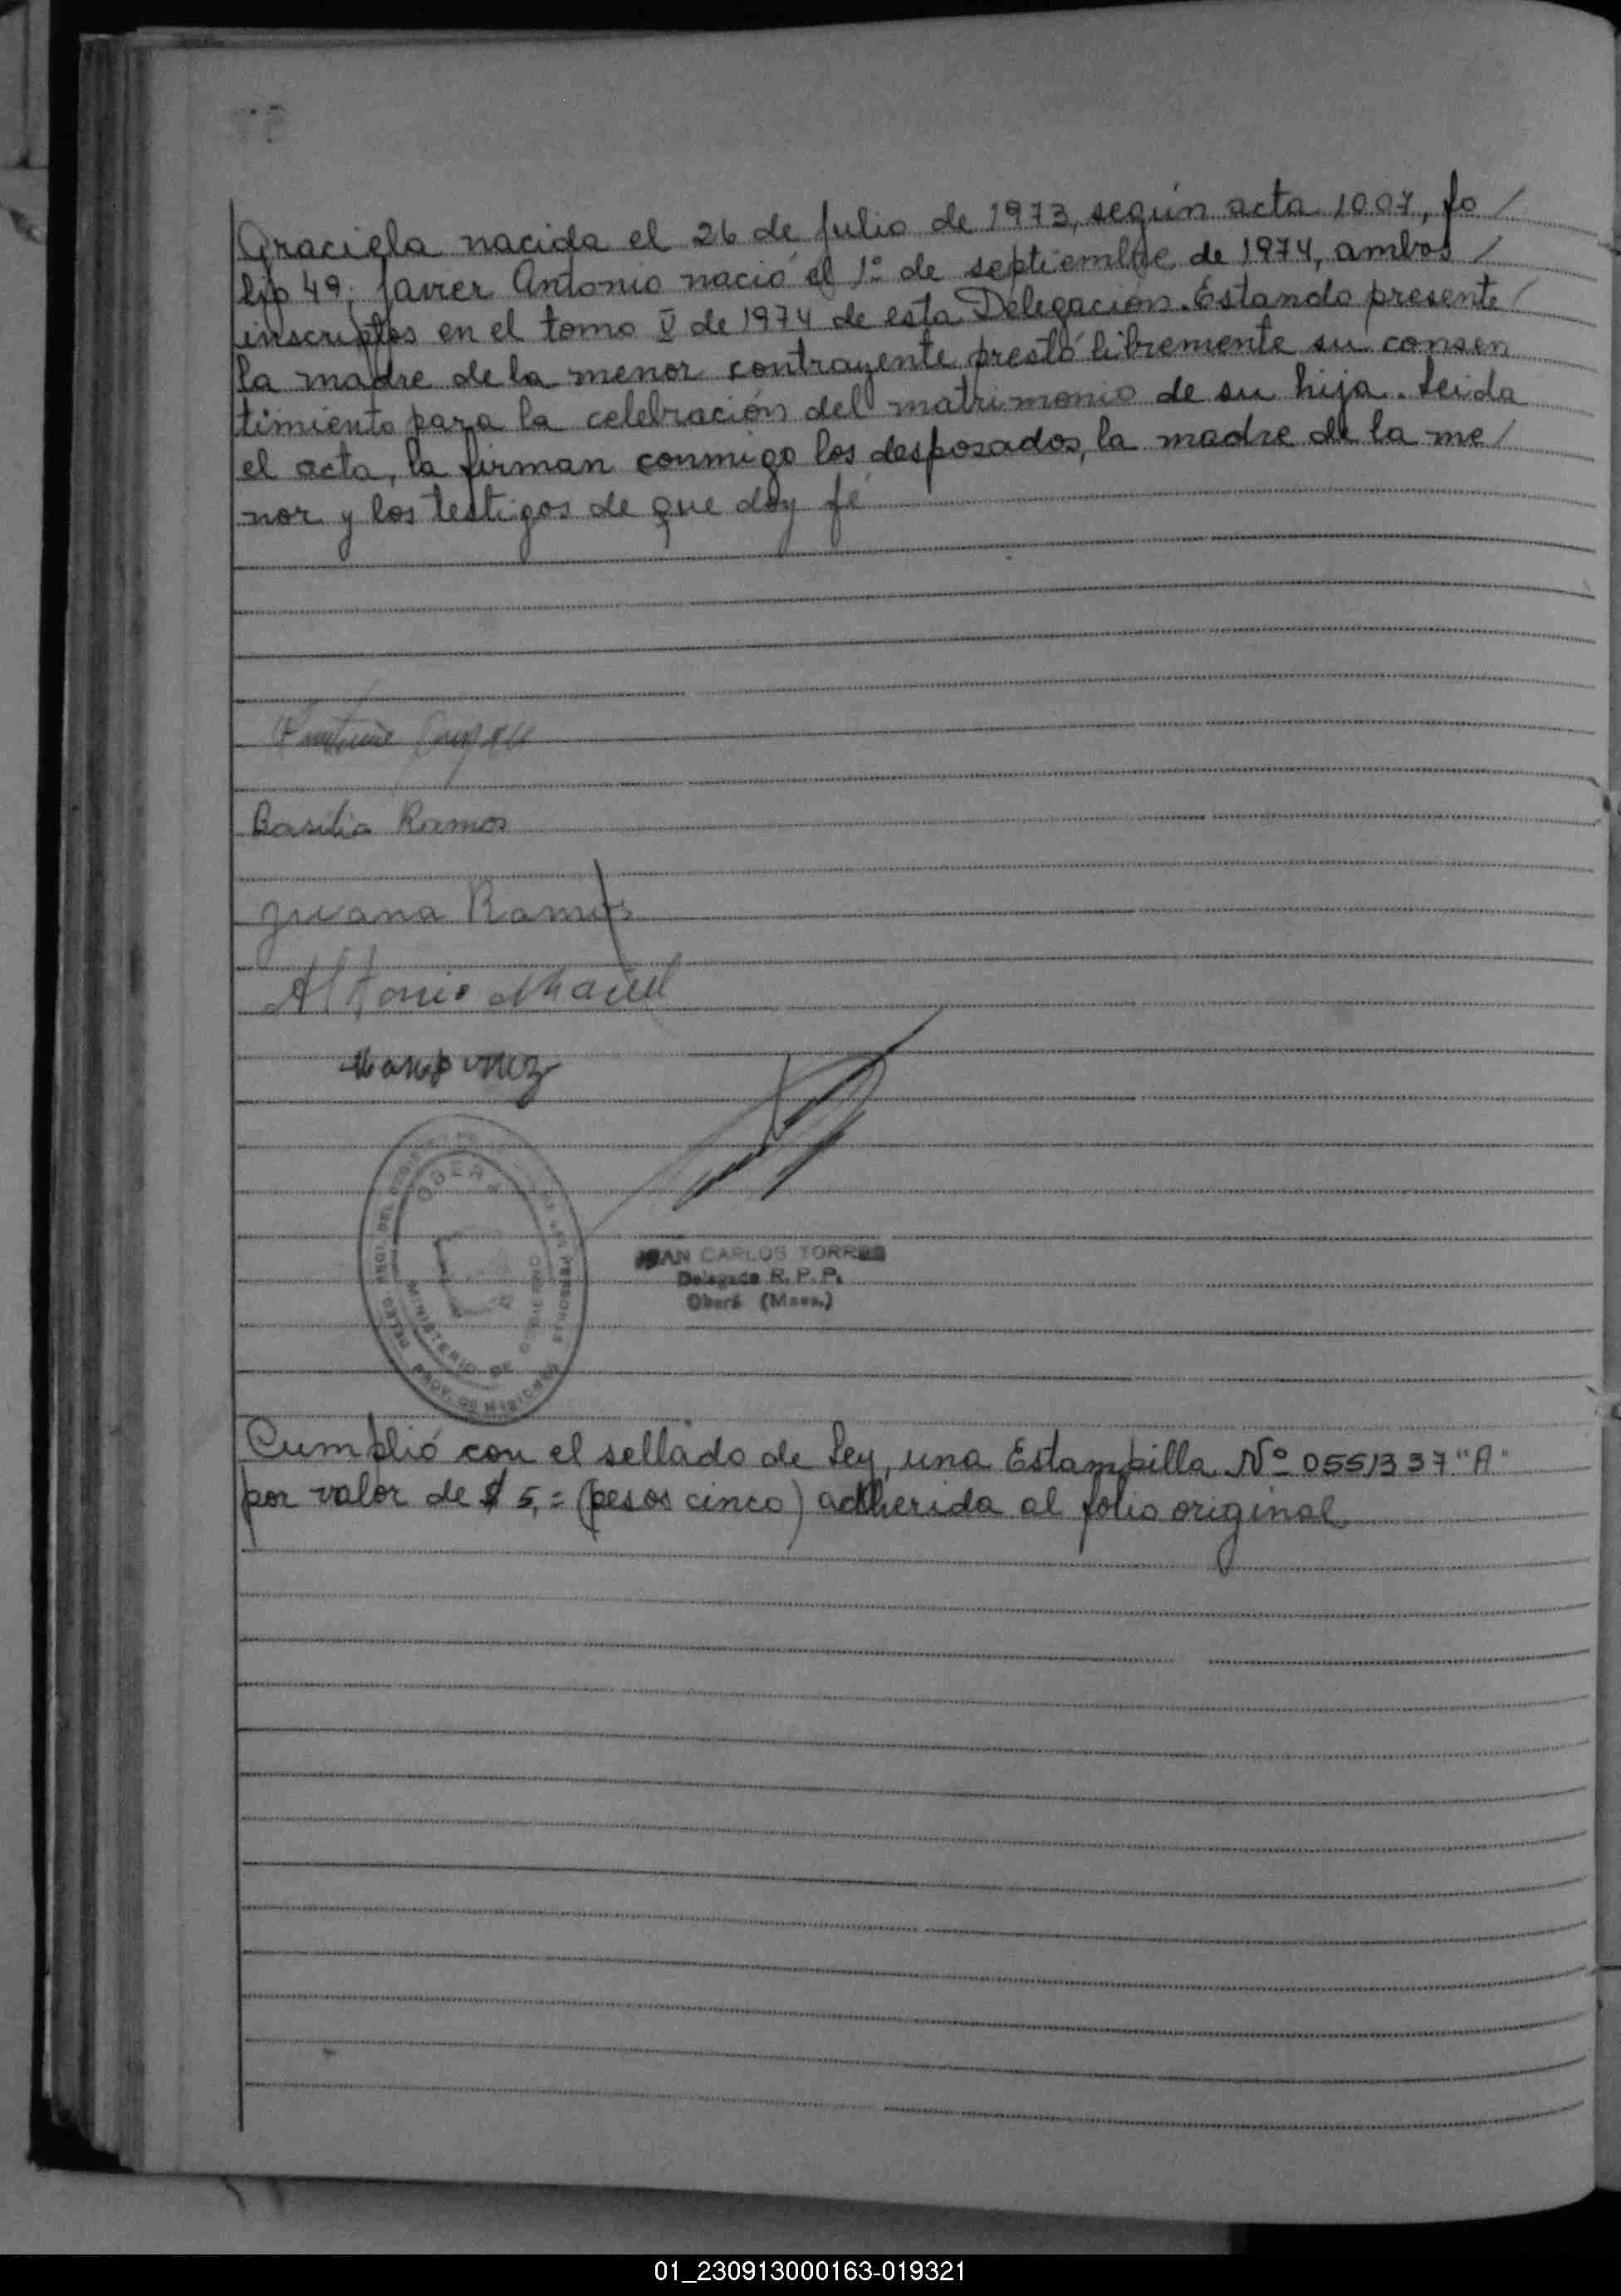 Graciela nacida el 26 de Julio de 1973, según acta 1007, fo/
lio 49; Javier Antonio nació el 1º de septiembre de 1974, ambos/
inscriptos en el tomo V de 1974 de esta Delegación. Estando presente/
la madre de la menor contrayente prestó libremente su consen
timiento para la celebración del matrimonio de su hija. Leida
el acta, la firman conmigo los desposados, la madre de la me/
nor y los testigos de que doy fé
Basilia Ramos
Juana Ramos
Antonio Maciel
OBERA
MINISTERIO DE GOBIERNO
PROV. DE MISIONES
JUAN CARLOS TORRES
Delegado R. P. P.
Oberá (Mnes.)
Cumplió con el sellado de Ley, una Estampilla Nº 0551337 "A"
por valor de $ 5,= (pesos cinco) adherida al folio original
01_230913000163-019321